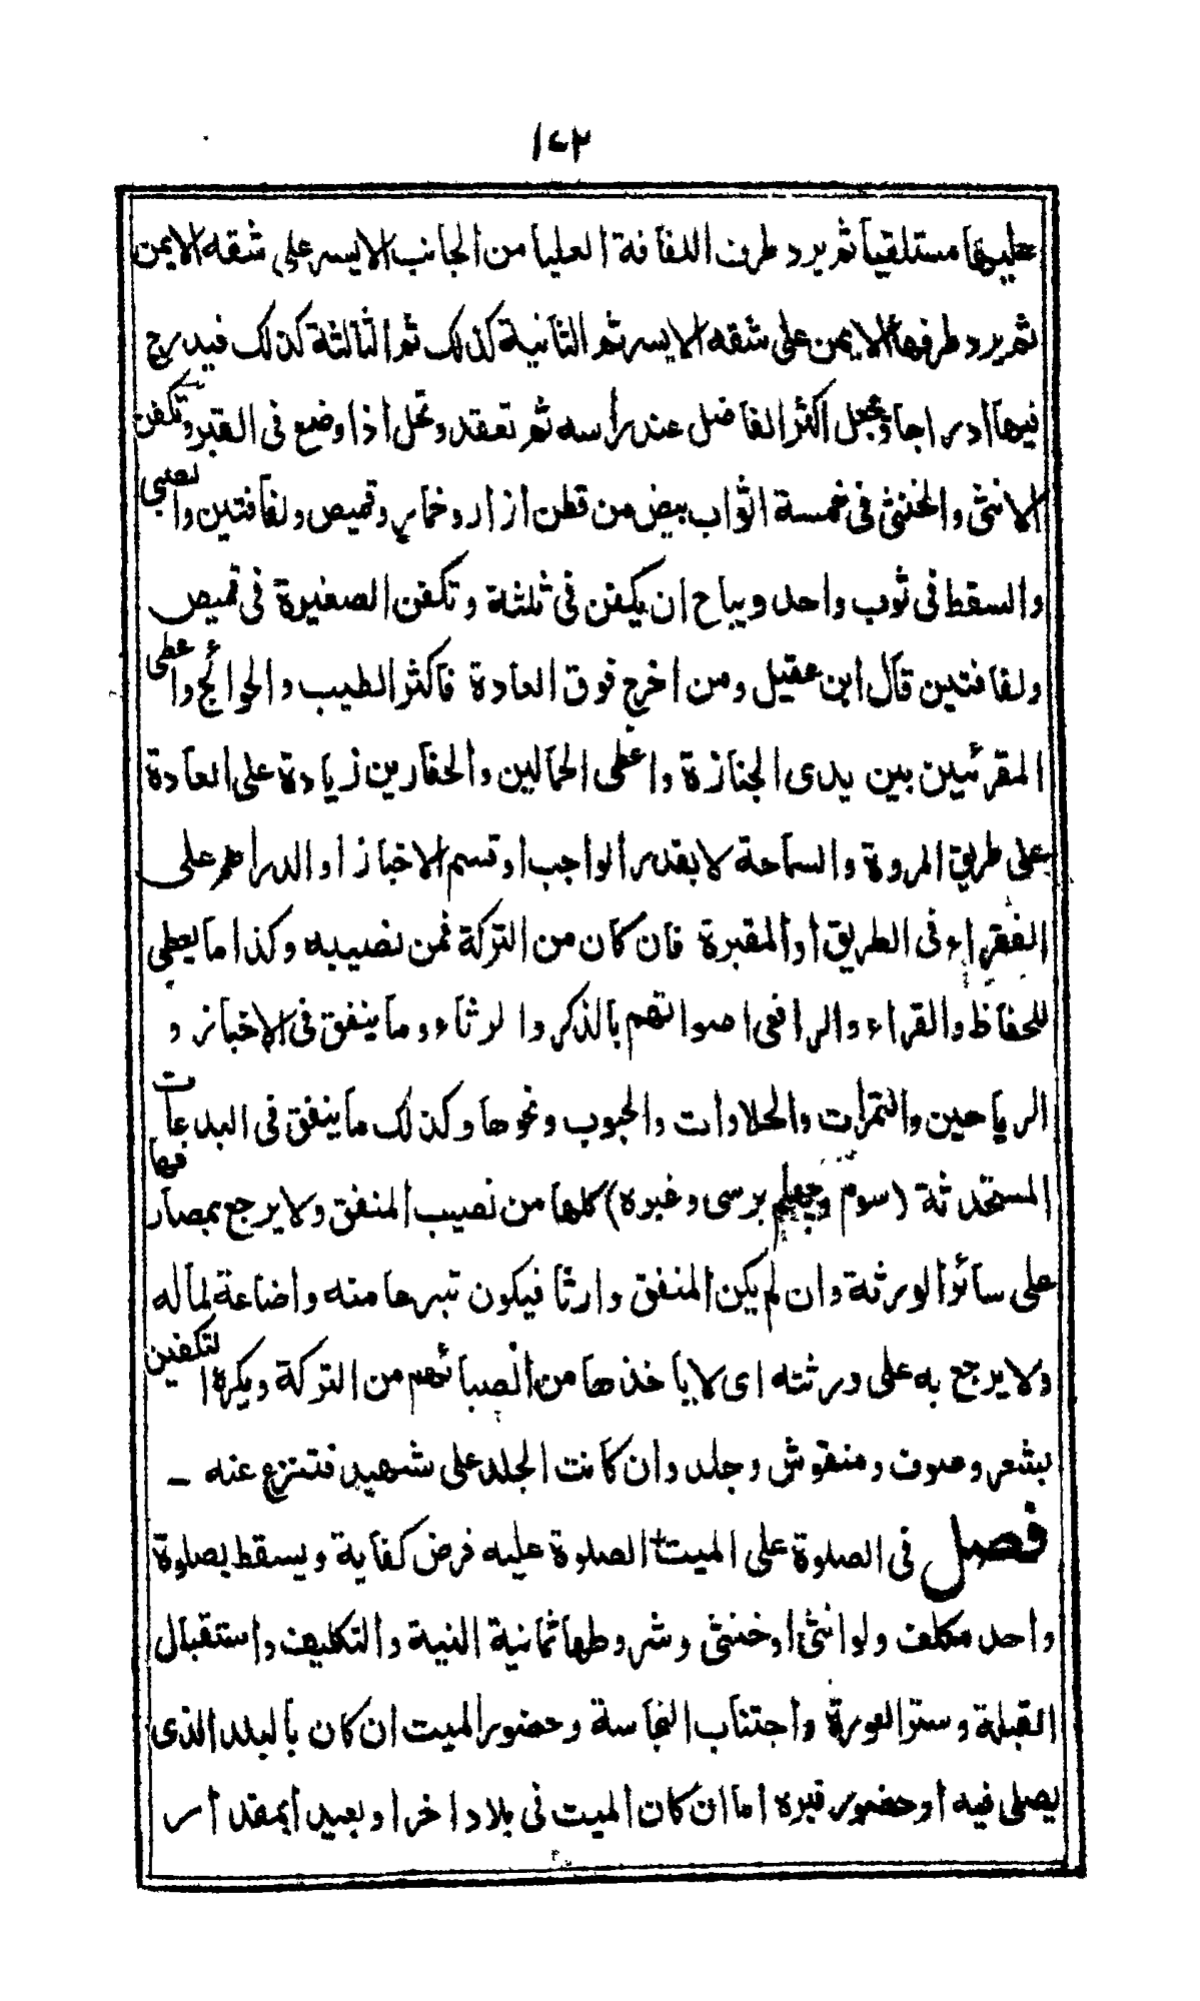 ١٤٢
عليها مستلقيا ثم يرد طرف اللفافة العليا من الجانب الايسر على شقه الايمن
ثم يرد طرفها الايمن على شقه الايسر ثم الثانية كذلك ثم الثالثة كذلك فيدرج
فيها ادراجا ويجعل اكثر الفاضل عند رأسه ثم تعقد وتحل اذا وضع فى القبر وتكفن
الانثى والخنثى فى خمسة اثواب بيض من قطن ازار وخمار وقميص ولفافتين والصبى
والسقط فى ثوب واحد ويباح ان يكفن فى ثلثة وتكفن الصغيرة فى قميص
ولفافتين قال ابن عقيل ومن اخرج فوق العادة فاكثر الطيب والحوائج واعطى
المقرئين بين يدى الجنازة واعطى الحمالين والحفارين زيادة على العادة
على طريق المروة والسماحة لا بقدر الواجب او قسم الاخباز او الدراهم على
الفقراء فى الطريق او المقبرة فان كان من التركة فمن نصيبه وكذا ما يعطى
للحفاظ والقراء والرافعى اصواتهم بالذكر والرثاء وما ينفق فى الاخباز و
الرياحين والتمرات والحلاوات والحبوب ونحوها وكذلك ما ينفق فى البدعات
المستحدثة (سوم وچهلم برسى وغيره) كلها من نصيب المنفق ولا يرجع بمصارفها
على سائر الورثة وان لم يكن المنفق وارثا فيكون تبرعا منه واضاعة لماله
ولا يرجع به على ورثته اى لا ياخذها من انصبائهم من التركة ويكره التكفين
بشعر وصوف ومنقوش وجلد وان كانت الجلد على شهيد فتنزع عنه -
فصل فى الصلوة على الميت الصلوة عليه فرض كفاية ويسقط بصلوة
واحد مكلف ولو انثى او خنثى وشروطها ثمانية النية والتكليف واستقبال
القبلة وستر العورة واجتناب النجاسة وحضور الميت ان كان بالبلد الذى
يصلى فيه او حضور قبره اما ان كان الميت فى بلاد اخر او بعيد ابمقدار